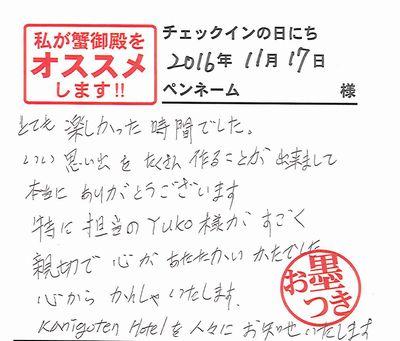 私が蟹御殿を
オススメ
します!!
チェックインの日にち
2016年 11月 17日
ペンネーム 様
とても 楽しかった 時間でした。
いい 思い出 を たくさん 作ることが 出来まして
本当に ありがとうございます
特に 担当の Yuko 様が すごく
親切で 心が あたたかい かたでした
心から かんしゃ いたします.
Kanigoten Hotel を 人々に お知せ いたします
お墨つき